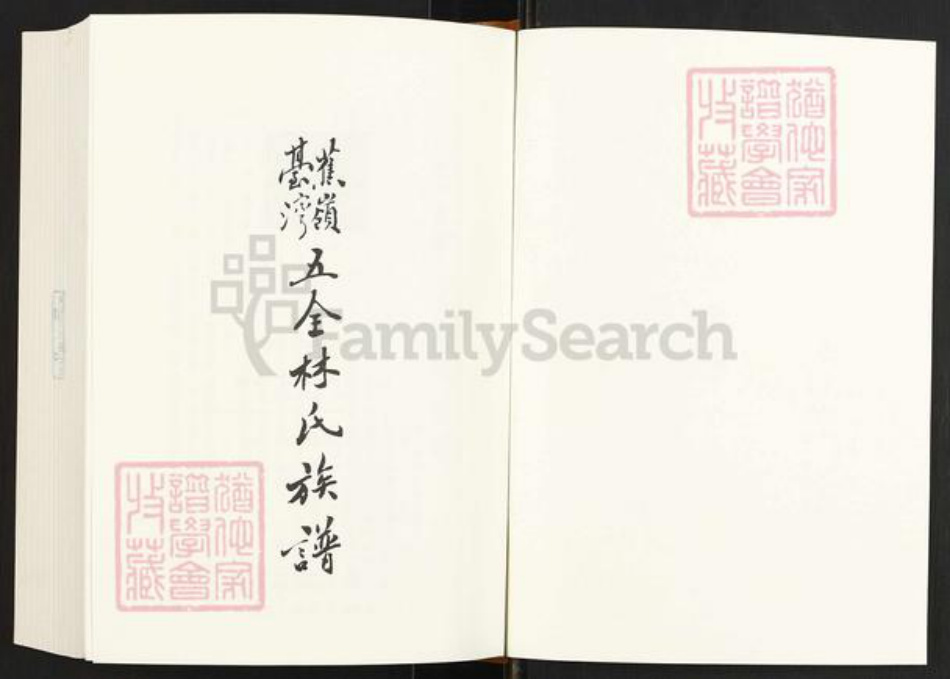 蕉嶺
臺灣
五全林氏族譜
猶他家
譜學會
收藏
猶他家
譜學會
收藏
FamilySearch